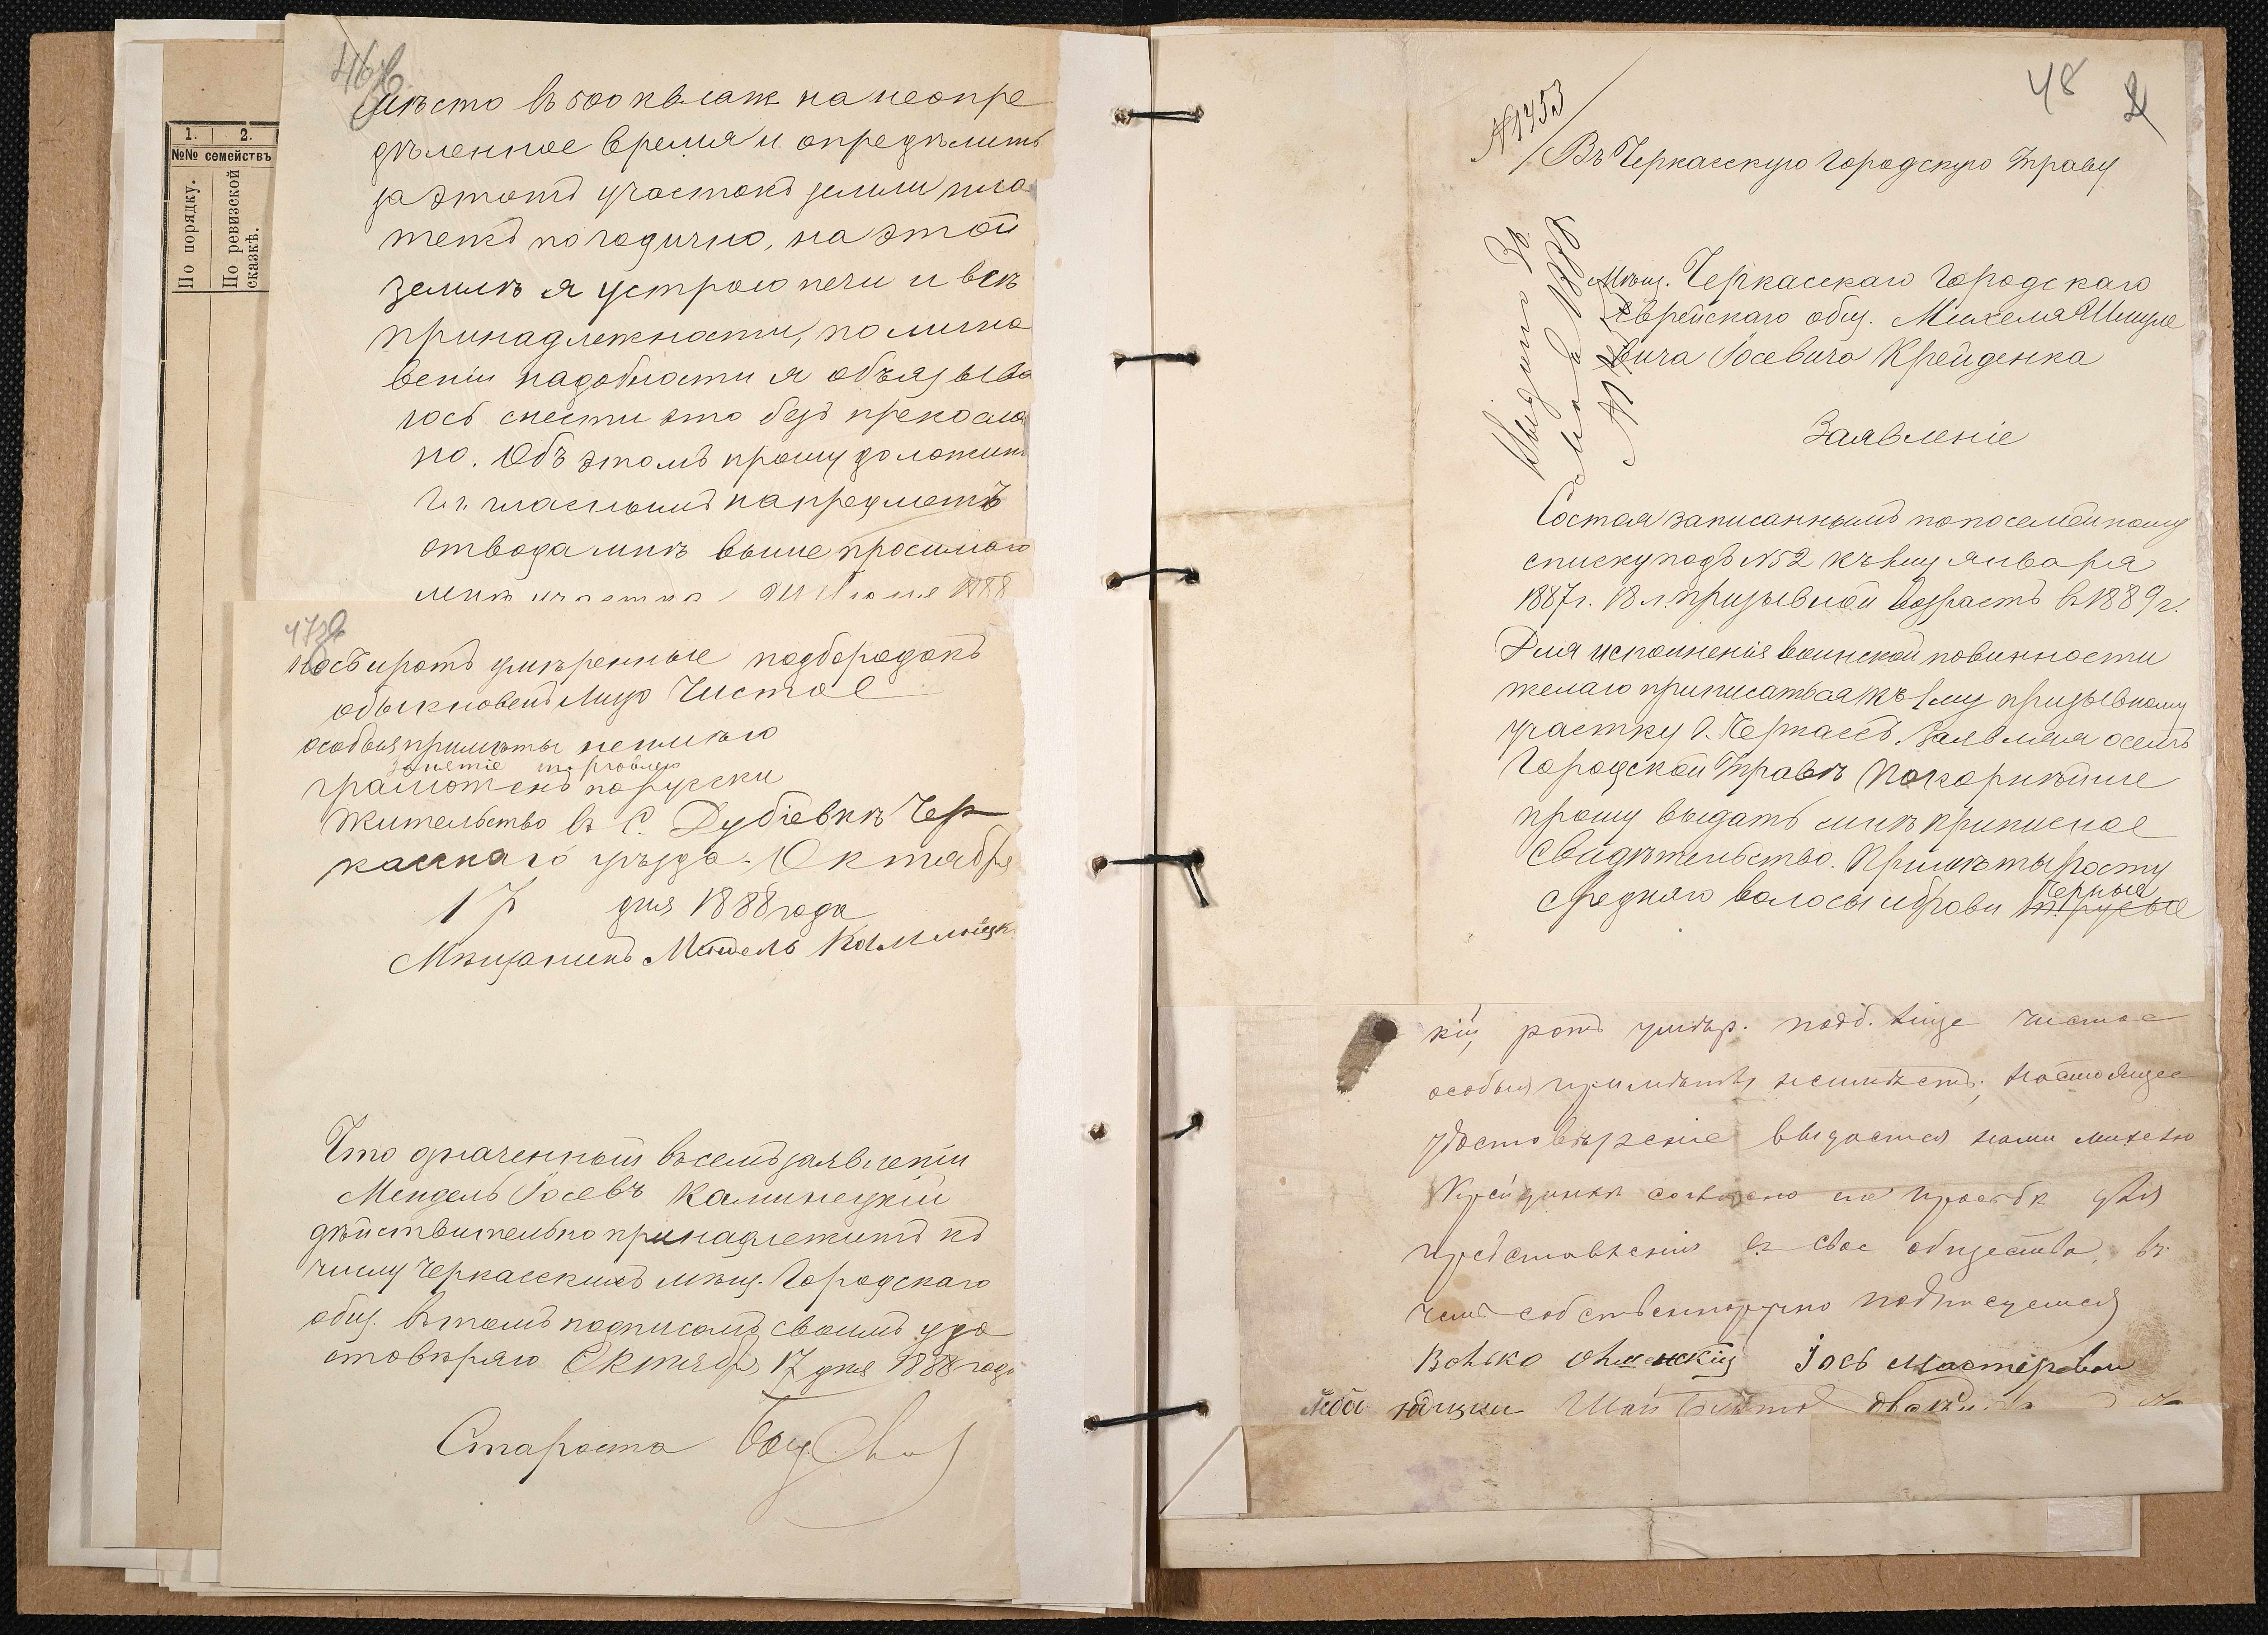 1. 2.
№№ семействъ
По порядку.
По ревизской сказкѣ.
46об
мѣсто въ 500 кв саж на неопре
дѣленное время и опредѣлить
за этотъ участокъ земли пла
тежъ погодично, на этой
землѣ я устрою печи и всѣ
принадлежности, по мино
веніи надобности я обязыва
юсь снести это безъ прекосло
но. Объ этомъ прошу доложить
г.г. гласнымъ на предметъ
отвода мнѣ выше просимаго
мнѣ участка 1888
47об
носъ и ротъ умѣренные подбородокъ
обыкновенъ лицо чистое
особыя примѣты не имѣю
занятіе торговлею
грамотенъ по русски
жительство въ С. Дубіевкѣ Чер
касскаго уѣзда. Октября
17 дня 1888 года
Мѣщанинъ Мендель
Что значенный въ семъ заявленіи
Мендель Іосевъ Каминецкій
дѣйствительно принадлежитъ къ
числу Черкасскихъ мѣщ. Городскаго
общ. въ томъ подписомъ своимъ удо
стовѣряю Октября 17 дня 1888 года
Староста
48
№1453
Въ Черкасскую Городскую Управу
Мѣщ. Черкасскаго Городскаго
Еврейскаго общ. Михеля Шмуле
вича Іосевича Крейденка
Заявленіе
Состоя записаннымъ по посемейному
списку подъ №52 къ 1му января
1887г. 18 л. призывной возрастъ въ 1889г.
Для исполненія воинской повинности
желаю приписаться къ 1му призывному
участку г. Черкассъ. Заявляя о семъ
Городской Управѣ Покорнѣйше
прошу выдать мнѣ приписное
Свидѣтельство. Примѣты росту
средняго волосы и брови черные
кій, ротъ умѣр. подб. лице чистое
особыя примѣты неимѣетъ, настоящее
удостовѣреніе выдается нами михелю
Крейдинки согласно его просьбѣ для
представленія въ свое общество, въ
чемъ собственноручно подписуемся
Волько Іось Мастеровой